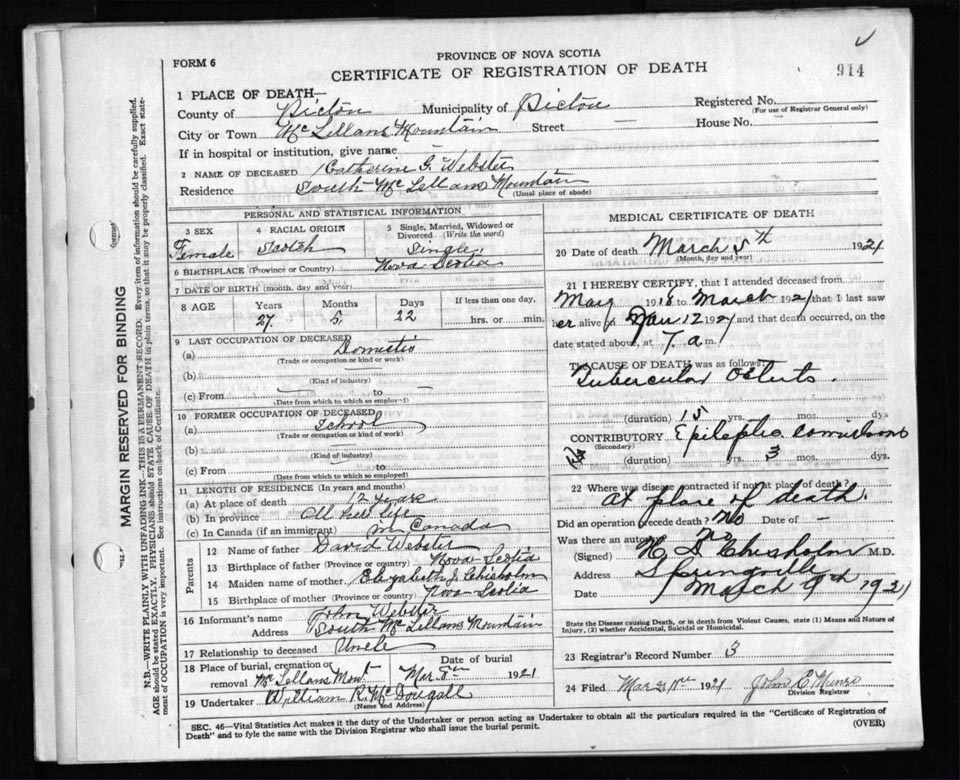 FORM 6
PROVINCE OF NOVA SCOTIA
CERTIFICATE OF REGISTRATION OF DEATH
914
1 PLACE OF DEATH—
County of Pictou Municipality of Pictou Registered No.
(For use of Registrar General only)
City or Town McLellans Mountain Street — House No.
If in hospital or institution, give name —
2 NAME OF DECEASED Catherine G. Webster
Residence South McLellans Mountain
(Usual place of abode)
PERSONAL AND STATISTICAL INFORMATION
3 SEX 4 RACIAL ORIGIN 5 Single, Married, Widowed or Divorced (Write the word)
Female Scotch Single
6 BIRTHPLACE (Province or Country) Nova Scotia
7 DATE OF BIRTH (month, day and year)
8 AGE Years Months Days If less than one day,
27 5 22 hrs. or min.
9 LAST OCCUPATION OF DECEASED
(a) Domestic
(Trade or occupation or kind of work)
(b)
(Kind of industry)
(c) From — to —
(Date from which to which so employed)
10 FORMER OCCUPATION OF DECEASED
(a) School
(Trade or occupation or kind of work)
(b)
(Kind of industry)
(c) From to
(Date from which to which so employed)
11 LENGTH OF RESIDENCE (In years and months)
(a) At place of death 12 years
(b) In province All her life
(c) In Canada (if an immigrant) in Canada
Parents
12 Name of father David Webster
13 Birthplace of father (Province or country) Nova Scotia
14 Maiden name of mother Elizabeth J. Chisholm
15 Birthplace of mother (Province or country) Nova Scotia
16 Informant's name John Webster
Address South McLellans Mountain
17 Relationship to deceased Uncle
18 Place of burial, cremation or removal McLellans Mount Date of burial Mar 8th 1921
19 Undertaker William R. McDougall
(Name and Address)
MEDICAL CERTIFICATE OF DEATH
20 Date of death March 5th 1921
(Month, day and year)
21 I HEREBY CERTIFY, that I attended deceased from
1918 to March 1921 that I last saw
her alive on 12 1921 and that death occurred, on the
date stated above, at 7 a m.
The CAUSE OF DEATH was as follows:
Tubercular
(duration) 15 yrs. mos. dys
CONTRIBUTORY Epileptic
(Secondary)
(duration) yrs. 3 mos. dys.
22 Where was disease contracted if not at place of death?
At place of death.
Did an operation precede death? No Date of —
Was there an autopsy No
(Signed) Chisholm M.D.
Address Springville
Date March 9th 1921
State the Disease causing Death, or in death from Violent Causes, state (1) Means and Nature of Injury, (2) whether Accidental, Suicidal or Homicidal.
23 Registrar's Record Number 3
24 Filed 1921 John E Munro
Division Registrar
SEC. 46—Vital Statistics Act makes it the duty of the Undertaker or person acting as Undertaker to obtain all the particulars required in the "Certificate of Registration of
Death" and to fyle the same with the Division Registrar who shall issue the burial permit.
(OVER)
MARGIN RESERVED FOR BINDING
N.B.—WRITE PLAINLY WITH UNFADING INK—THIS IS A PERMANENT RECORD. Every item of information should be carefully supplied.
AGE should be stated EXACTLY. PHYSICIANS should STATE CAUSE OF DEATH in plain terms, so that it may be properly classified. Exact statement of OCCUPATION is very important. See instructions on back of Certificate.